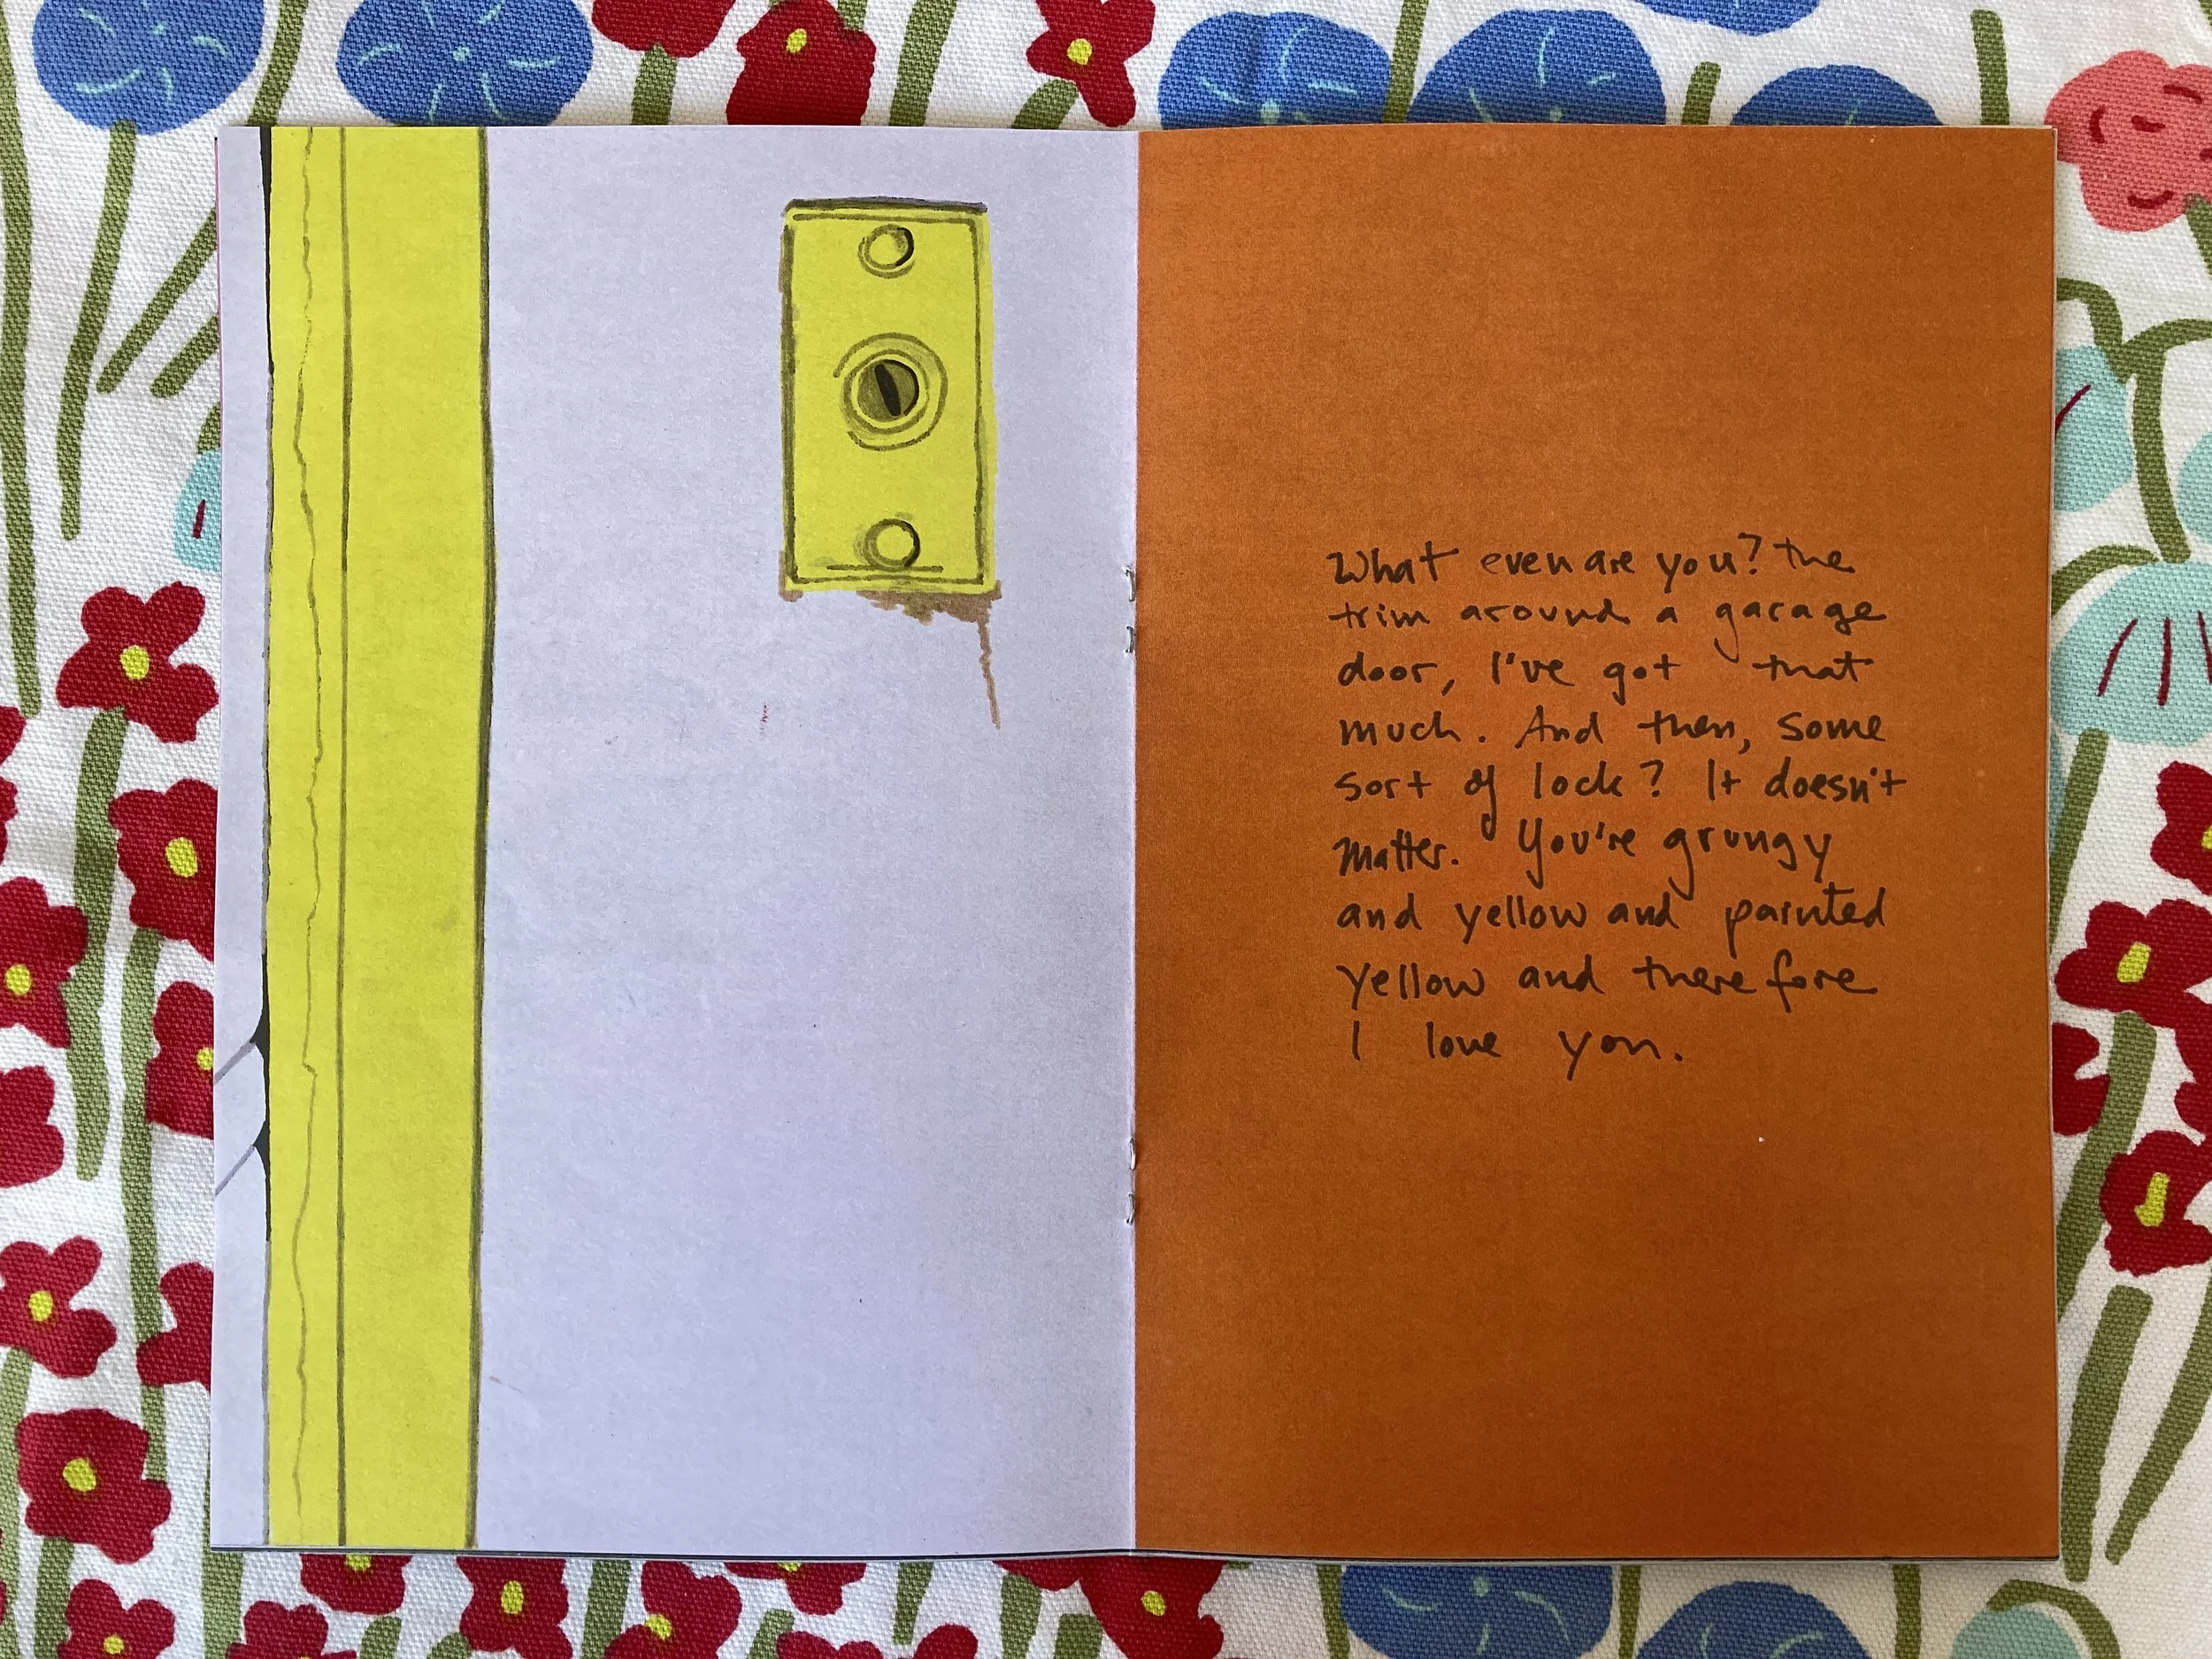 What even are you? the
trim around a garage
door, I've got that
much. And then, some
sort of lock? It doesn't
matter. You're grungy
and yellow and painted
yellow and therefore
I love you.